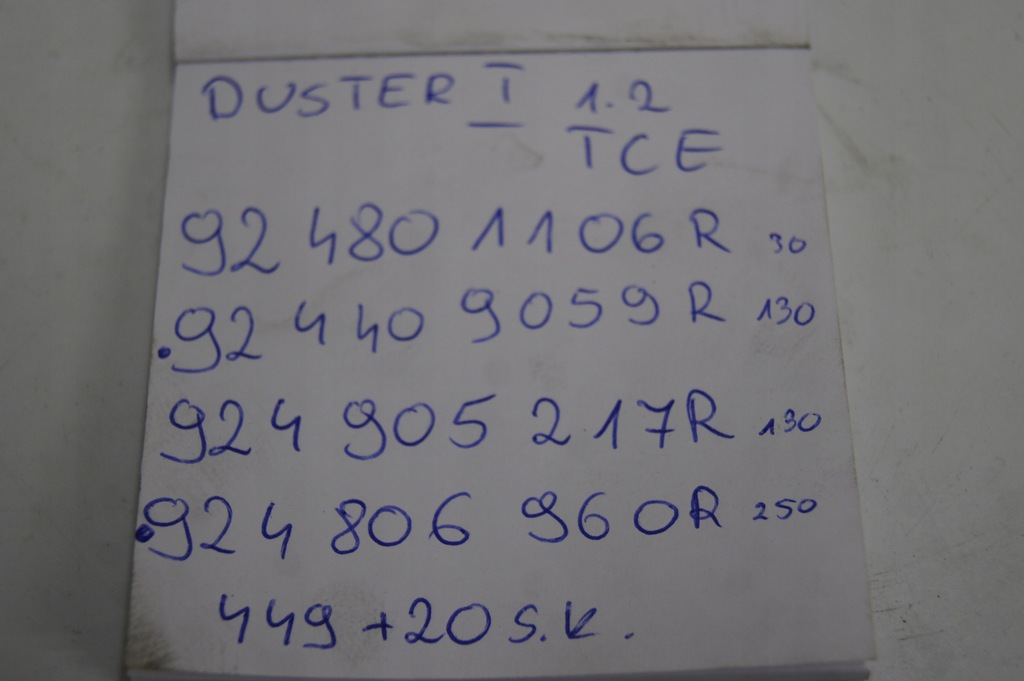 DUSTER I 1.2
TCE
92 480 1106R 30
.92 440 9059R 130
924 905 217R 130
.924 806 960R 250
449 +20 S.K.